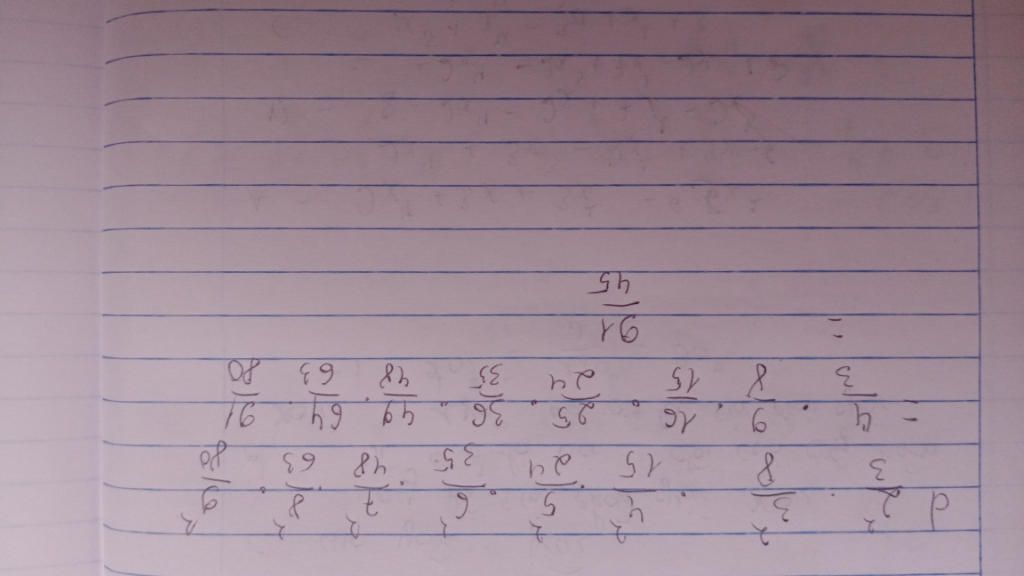 d 2²/3 · 3²/8 · 4²/15 · 5²/24 · 6²/35 · 7²/48 · 8²/63 · 9²/80
= 4/3 · 9/8 · 16/15 · 25/24 · 36/35 · 49/48 · 64/63 · 91/80
= 91/45